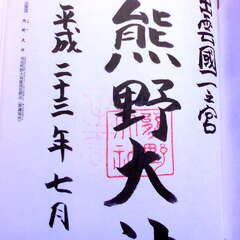 出雲國一之宮
熊野大社
平成二十三年七月